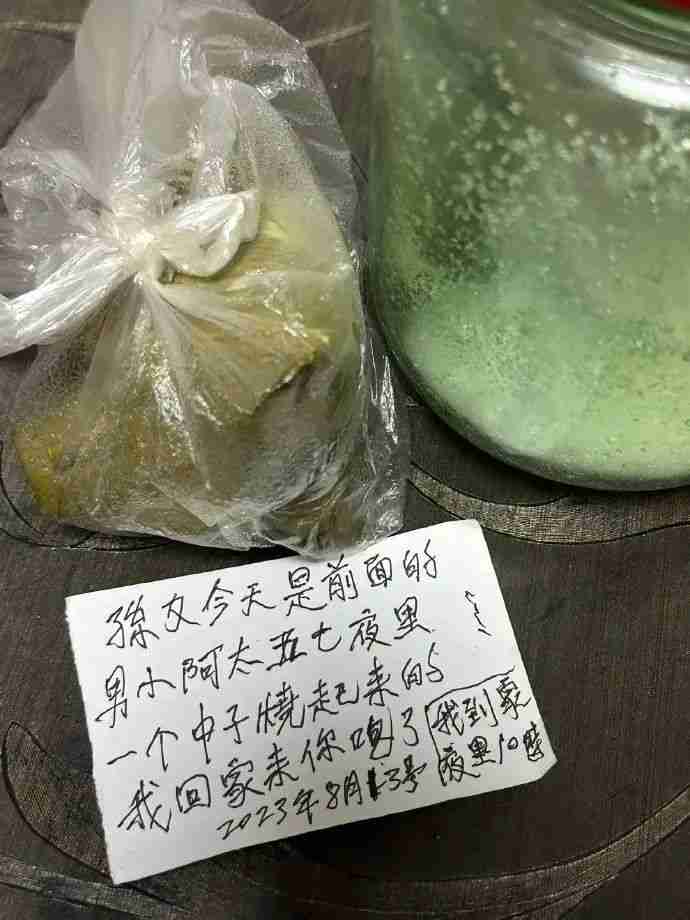 孫女今天是前面的
男小阿太五七夜里
一个中子燒起来的
我回家来你吃了
2023年8月13号
我到家
夜里10時